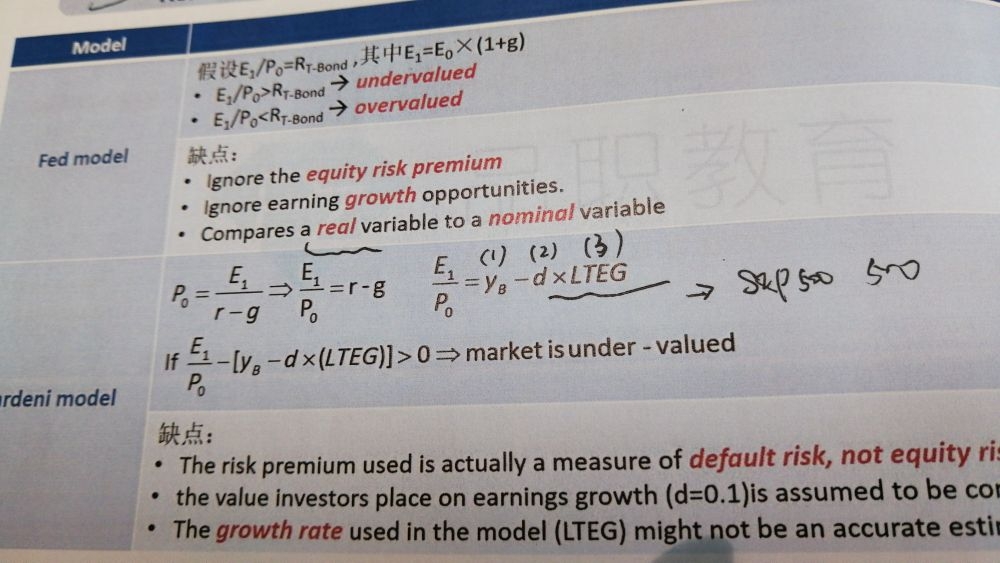 Model
假设E₁/P₀=R_T-Bond ,其中E₁=E₀×(1+g)
• E₁/P₀>R_T-Bond → undervalued
• E₁/P₀<R_T-Bond → overvalued
Fed model
缺点：
• Ignore the equity risk premium
• Ignore earning growth opportunities.
• Compares a real variable to a nominal variable
职教育
(1) (2) (3)
P₀ = E₁/(r−g) ⇒ E₁/P₀ = r-g E₁/P₀ = y_B − d × LTEG → S&P 500 500
If E₁/P₀ −[y_B − d×(LTEG)] > 0 ⇒ market is under - valued
ardeni model
缺点：
• The risk premium used is actually a measure of default risk, not equity ris
• the value investors place on earnings growth (d=0.1)is assumed to be con
• The growth rate used in the model (LTEG) might not be an accurate esti